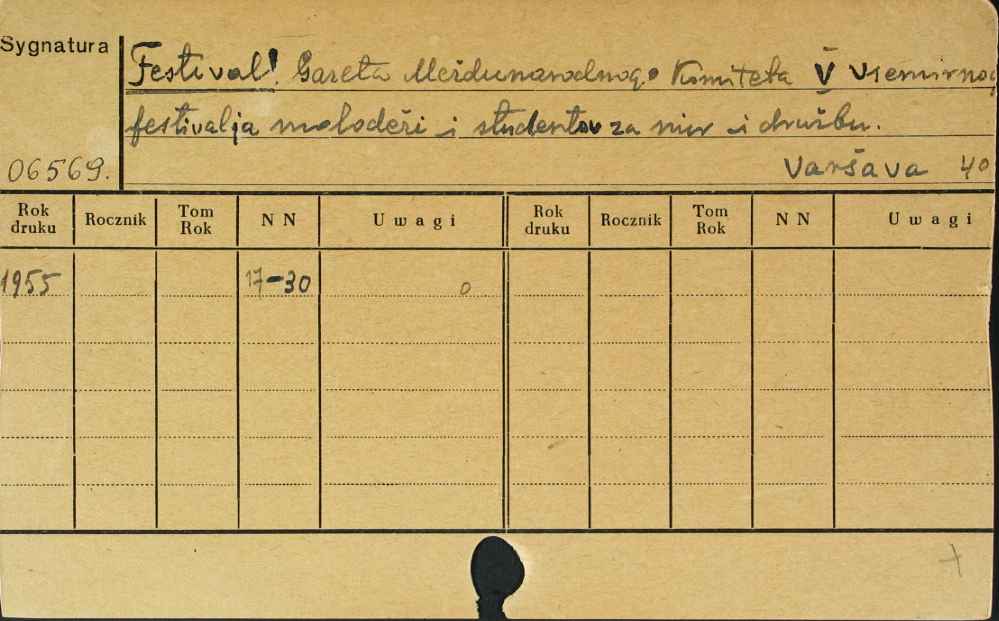 Sygnatura
Festival! Gazeta Meždunarodnogo Komiteta V Vsemirnog
festivalja molodeži i studentov za mir i družbu.
06569.
Varšava 40
Rok druku Rocznik Tom Rok N N Uwagi Rok druku Rocznik Tom Rok N N Uwagi
1955 17-30 0
+